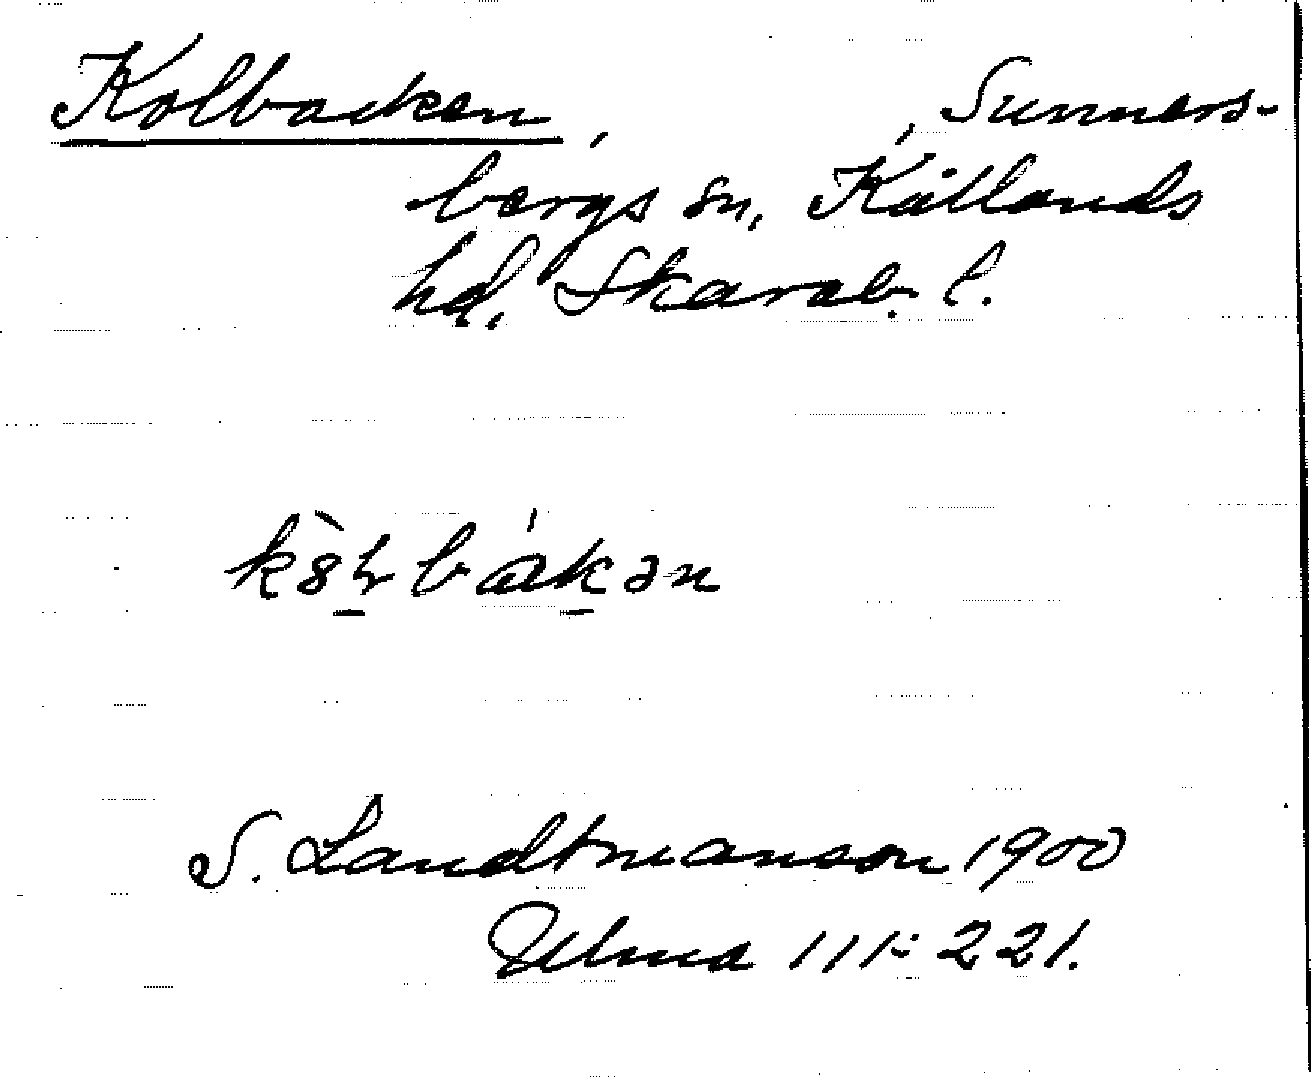 Kolbacken, , Sunners-
bergs sn, Kållands
hd, Skarab. l.
S. Landtmanson 1900
Ulma 111:221.